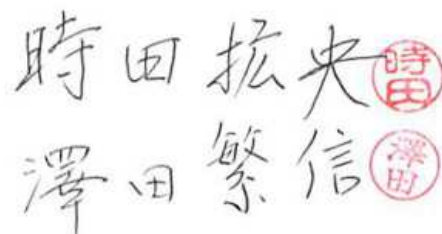 時田拡央 時田
澤田繁信 澤田